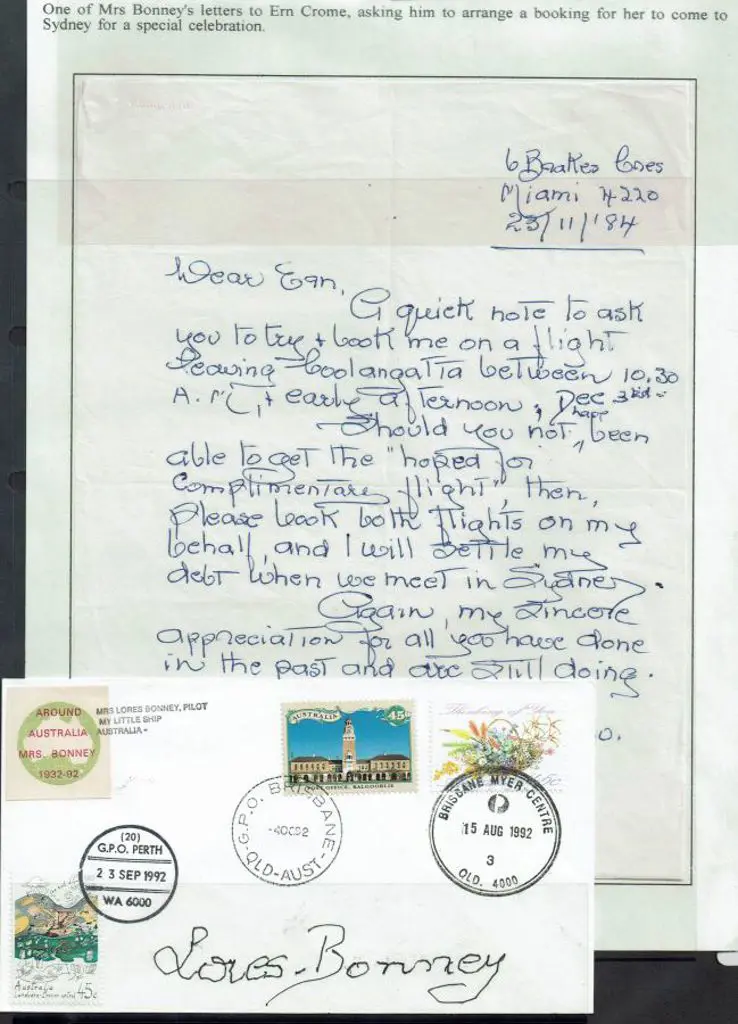 One of Mrs Bonney's letters to Ern Crome, asking him to arrange a booking for her to come to
Sydney for a special celebration.
6 Brakes Cres
Miami 4220
23/11/'84
Dear Ern,
A quick note to ask
you to try + book me on a flight
leaving Coolangatta between 10.30
A.M., + early afternoon, Dec 3rd.
Should you not, have been
able to get the "hoped for
complimentary flight", then,
please book both flights on my
behalf, and I will settle my
debt when we meet in Sydney.
Again, my sincere
appreciation for all you have done
in the past and are still doing.
AROUND
AUSTRALIA
MRS. BONNEY
1932-92
MRS LORES BONNEY, PILOT
MY LITTLE SHIP
AUSTRALIA -
AUSTRALIA 45c
POST OFFICE, KALGOORLIE
Thinking of You
45c
G.P.O. BRISBANE
-4OC92
QLD-AUST-
BRISBANE MYER CENTRE
15 AUG 1992
3
QLD. 4000
(20)
G.P.O. PERTH
23 SEP 1992
WA 6000
Australia
45c
Lores-Bonney